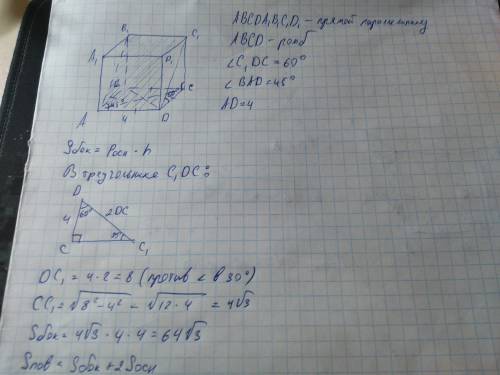 ABCDA₁B₁C₁D₁ - прямой
ABCD - ромб
∠C₁DC = 60°
∠BAD = 45°
AD = 4
B₁
C₁
A₁
D₁
C
A
4
D
Sбок = Pосн · h
В треугольнике C₁DC:
D
60°
4
2DC
C
C₁
DC₁ = 4·2 = 8 (против ∠ в 30°)
CC₁ = √8² - 4² = √12·4 = 4√3
Sбок = 4√3 · 4 · 4 = 64√3
Sпов = Sбок + 2Sосн